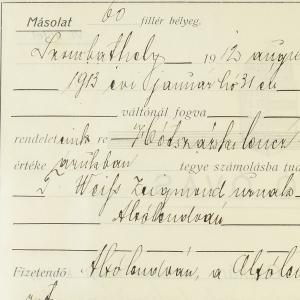 Másolat 60 fillér bélyeg.
Szombathely 1912 augus
1913 évi január hó 31 én
váltónál fogva
rendeleteink re
értéke árukban tegye számolásba tud
T. Weiss Zsigmond urnak
Alsólendván
Fizetendő Alsólendván, a Alsóle